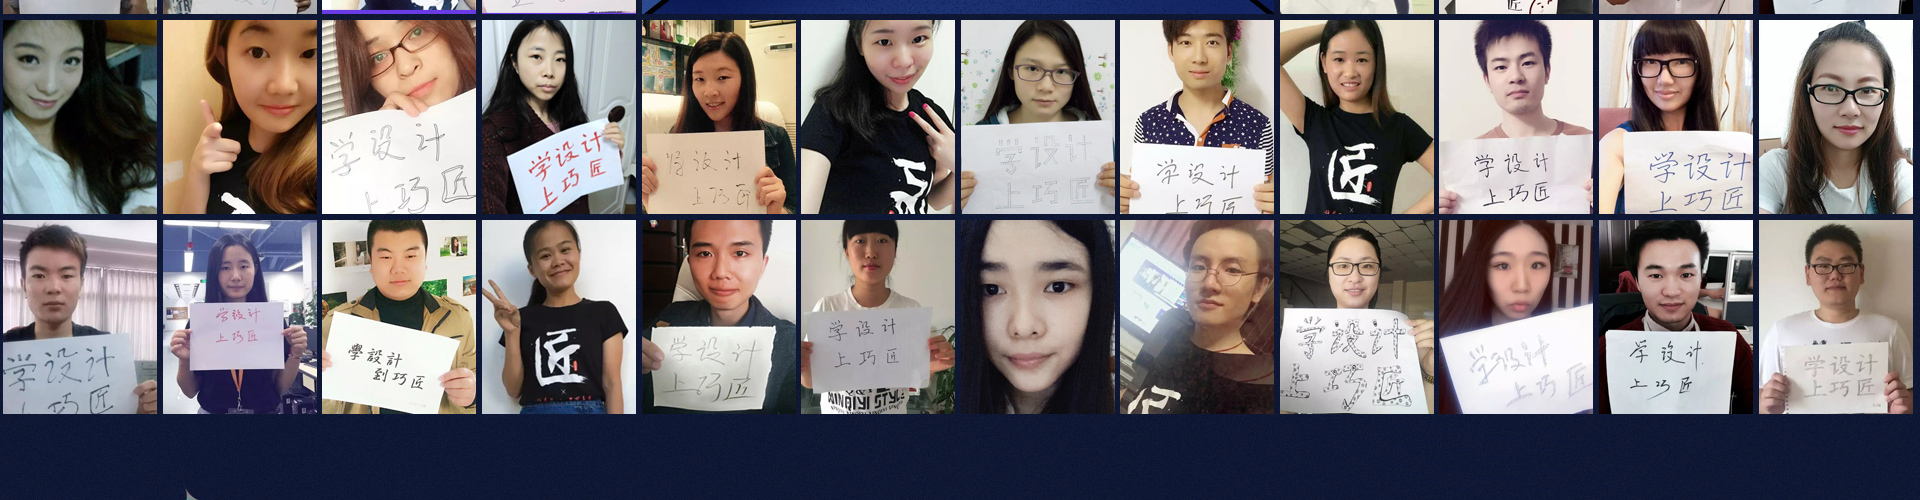 匠
学设计
上巧匠
学设计
上巧匠
学设计
上巧匠
学设计
上巧匠
学设计
上巧匠
匠
学设计
上巧匠
学设计
上巧匠
学设计
上巧匠
学设计
上巧匠
學設計
到巧匠
匠
学设计
上巧匠
学设计
上巧匠
学设计
上巧匠
学设计
上巧匠
学设计
上巧匠
学设计
上巧匠